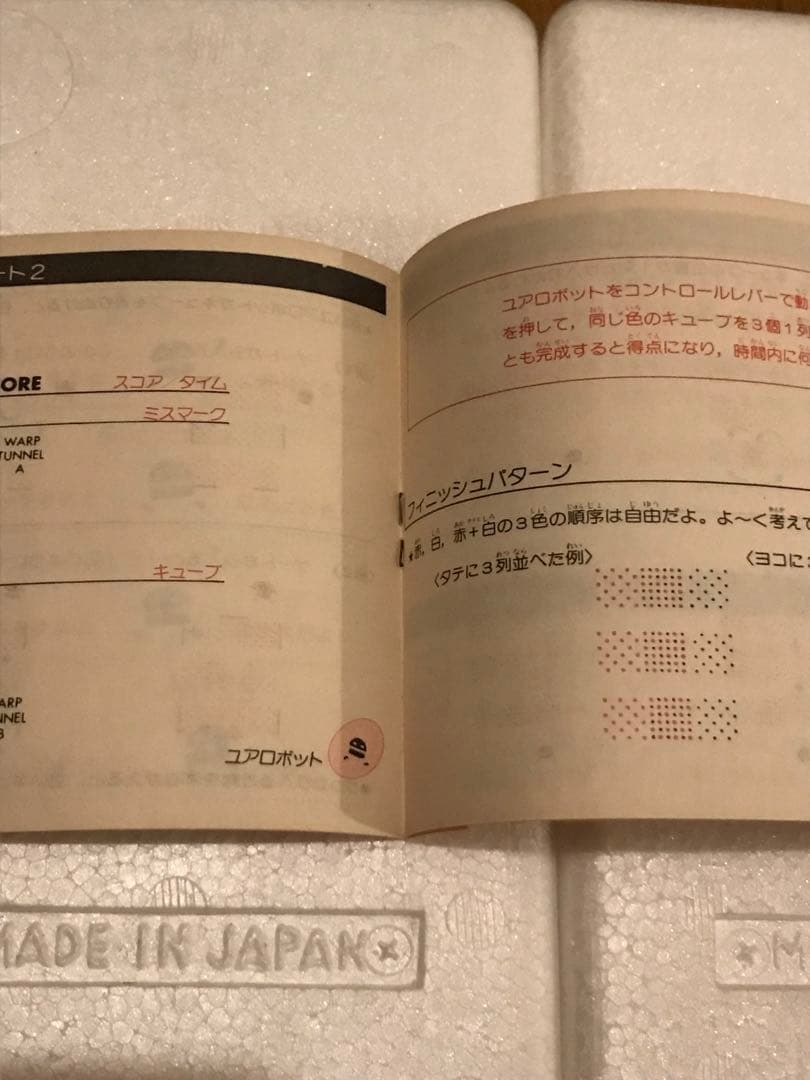 ート2
ORE スコア タイム
ミスマーク
WARP
TUNNEL
A
キューブ
ARP
NNEL
B
ユアロボット
ユアロボットをコントロールレバーで動
を押して，同じ色のキューブを3個1列
とも完成すると得点になり，時間内に何
フィニッシュパターン
★赤，白，赤＋白の3色の順序は自由だよ。よ～く考えて
〈タテに3列並べた例〉 〈ヨコに
MADE IN JAPAN
M